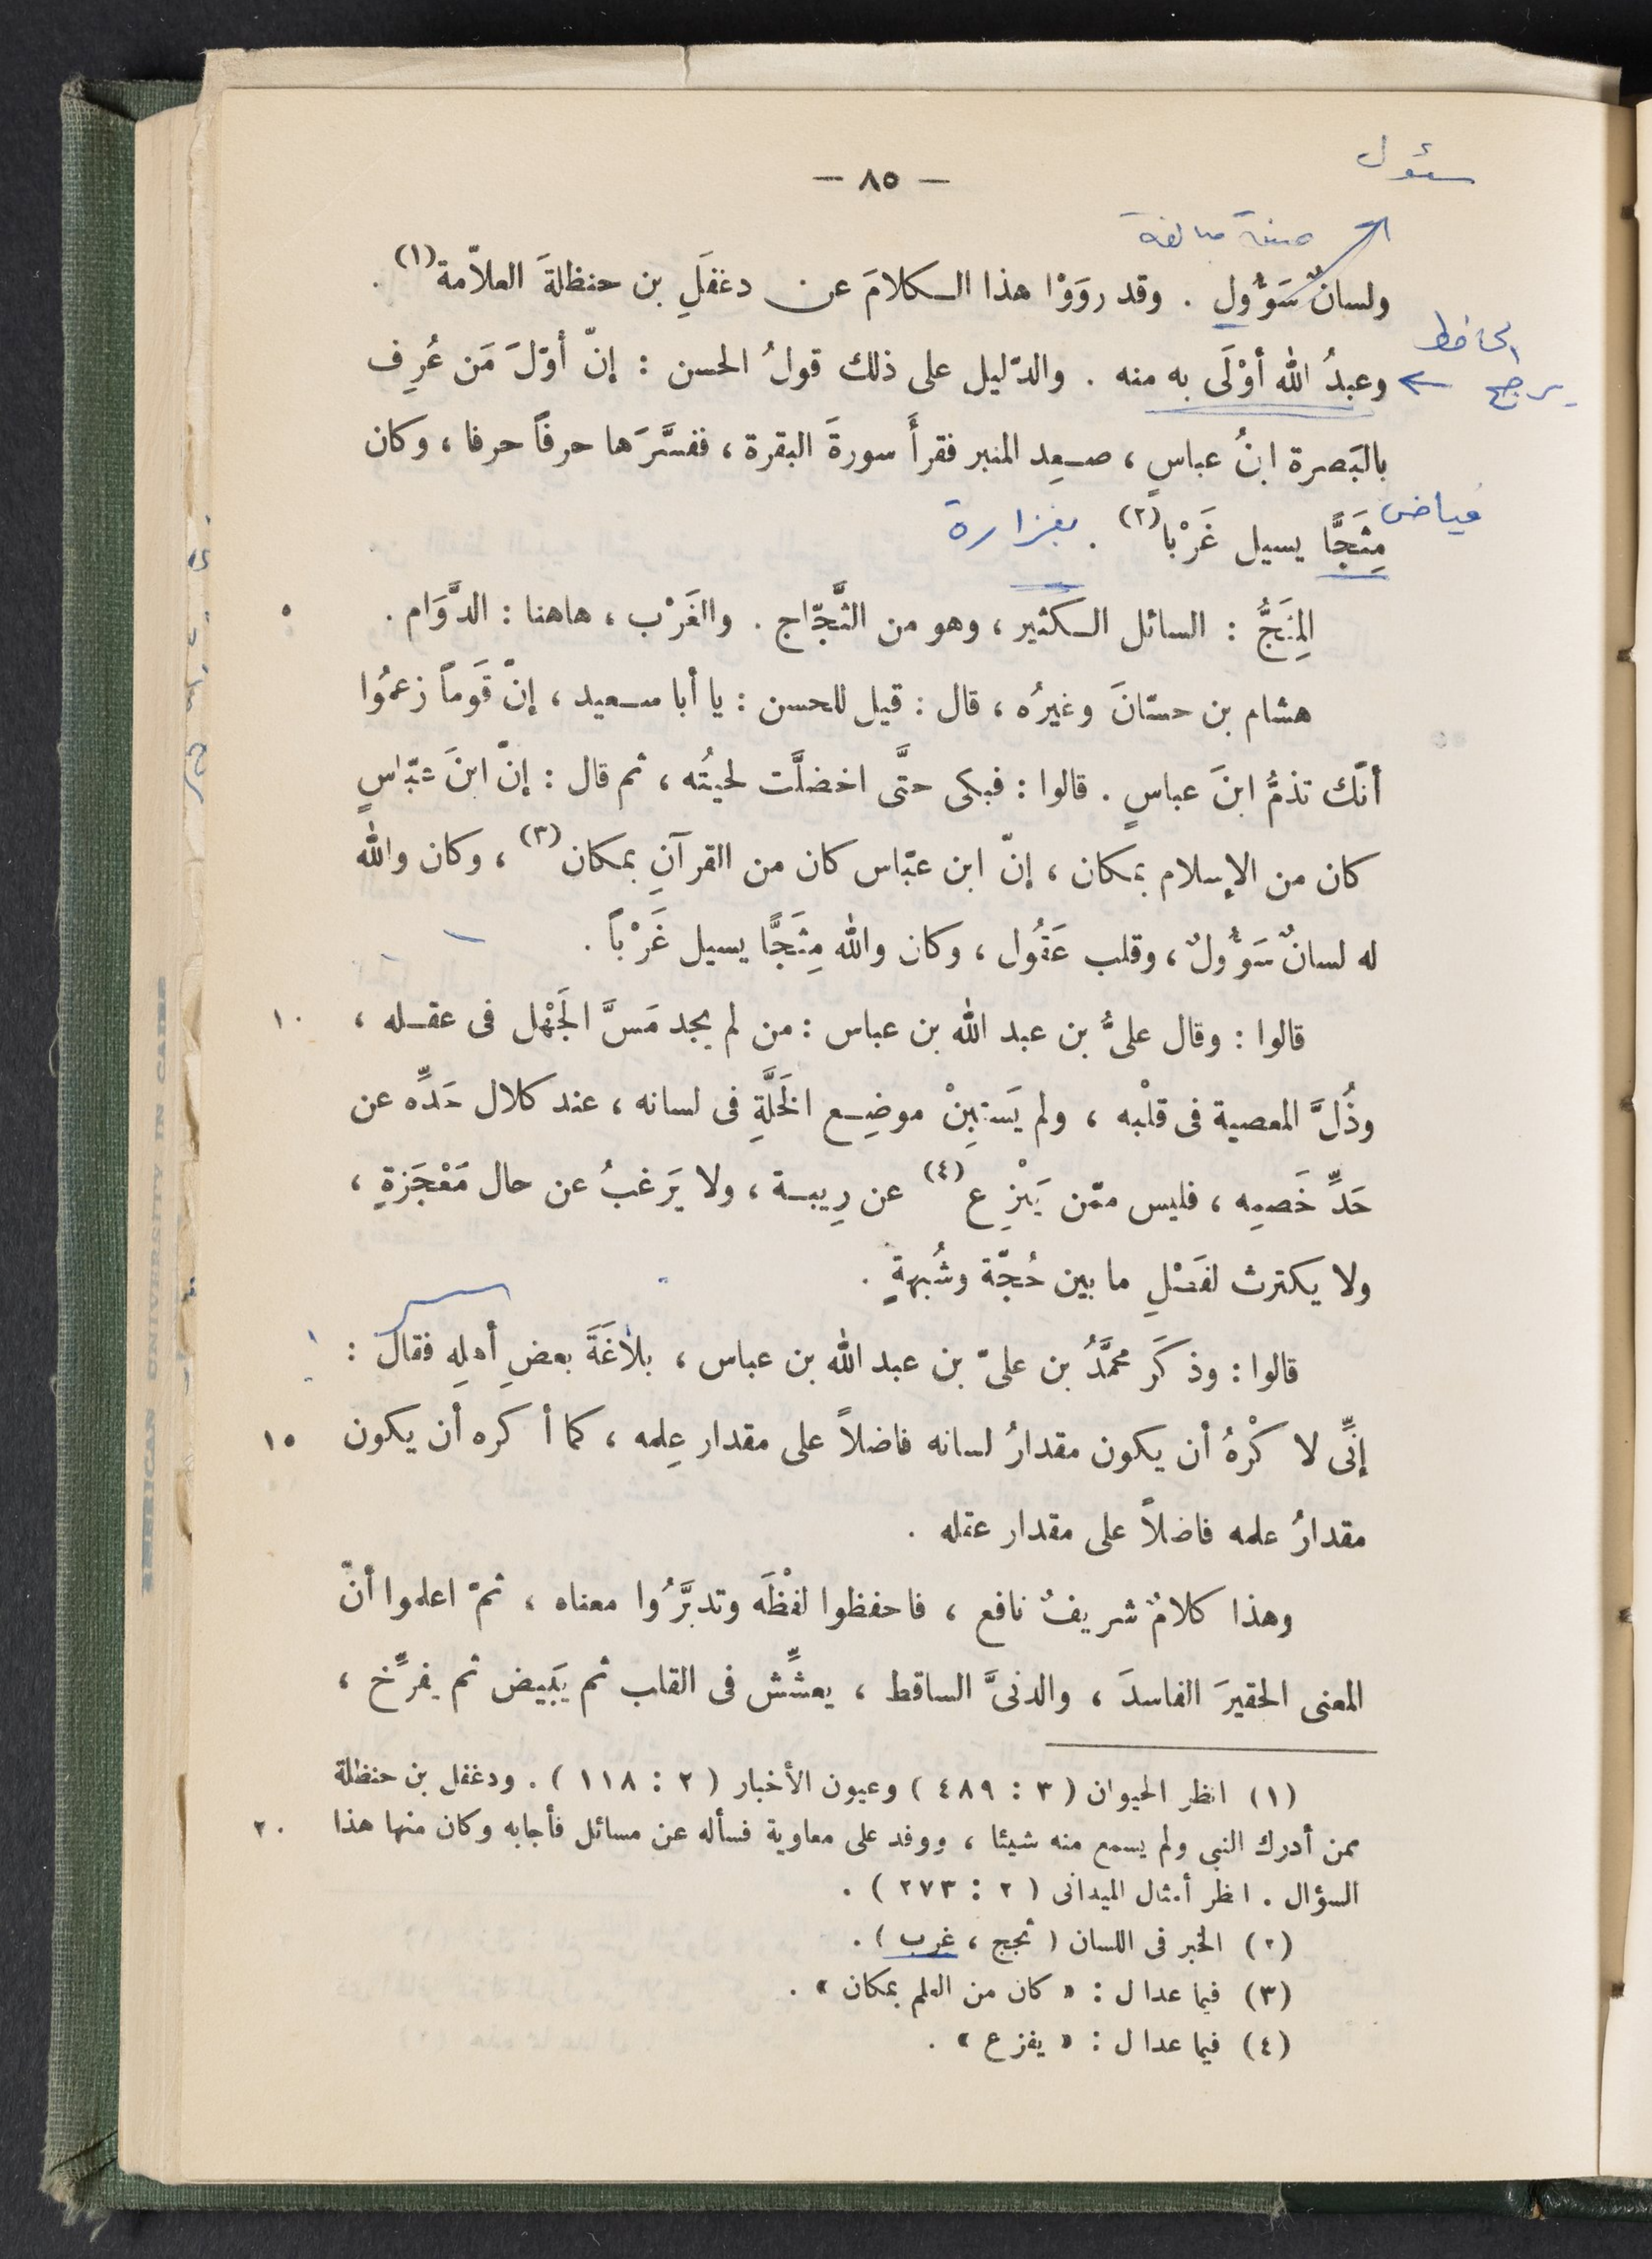 سئول
— ٨٥ —
صيغة مبالغة
ولسانٌ سَؤُولٍ . وقد روَوْا هذا الكلامَ عن دغفَلِ بن حنظلةَ العلاّمة(١) .
الجاحظ
يرجح ←
وعبدُ الله أوْلَى به منه . والدّليل على ذلك قولُ الحسن : إنّ أوّلَ مَن عُرِف
بالبَصرة ابنُ عباسٍ ، صعِد المنبر فقرأَ سورةَ البقرة ، ففسَّرَها حرفاً حرفا ، وكان
فياض
مِثَجًّا يسيل غَرْبا(٢) . بغزارة
المِثَجُّ : السائل الكثير ، وهو من الثَّجّاج . والغَرْب ، هاهنا : الدَّوَام . ٥
هشام بن حسّانَ وغيرُه ، قال : قيل للحسن : يا أبا سعيد ، إنّ قَوماً زعمُوا
أنّك تذمُّ ابنَ عباسٍ . قالوا : فبكى حتَّى اخضلَّت لحيتُه ، ثم قال : إنّ ابنَ عبّاسٍ
كان من الإسلام بمكان ، إنّ ابن عبّاس كان من القرآنِ بمكان(٣) ، وكان والله
له لسانٌ سَؤُولٌ ، وقلب عَقُول ، وكان والله مِثَجًّا يسيل غَرْباً .
قالوا : وقال علىُّ بن عبد الله بن عباس : من لم يجد مَسَّ الجَهْل فى عقله ، ١٠
وذُلَّ المعصية فى قلْبه ، ولم يَستَبِنْ موضِع الخَلَّةِ فى لسانه ، عند كلال حَدِّه عن
حَدِّ خَصمِه ، فليس ممّن يَنْزِع(٤) عن رِيبة ، ولا يَرغبُ عن حال مَعْجَزةٍ ،
ولا يكترث لفَصْلِ ما بين حُجّة وشُبهةٍ .
قالوا : وذكَر محمَّدُ بن علىّ بن عبد الله بن عباس ، بلاغَةَ بعضِ أهلِهِ فقال :
إنِّى لا كْرهُ أن يكون مقدارُ لسانه فاضلاً على مقدار عِلمه ، كما أكره أن يكون ١٥
مقدارُ علمه فاضلاً على مقدار عقله .
وهذا كلامٌ شريفٌ نافع ، فاحفظوا لفْظَه وتدبَّرُوا معناه ، ثمّ اعلموا أنّ
المعنى الحقيرَ الفاسدَ ، والدنىَّ الساقط ، يعشِّش فى القلب ثم يَبيض ثم يفرِّخ ،
(١) انظر الحيوان ( ٣ : ٤٨٩ ) وعيون الأخبار ( ٢ : ١١٨ ) . ودغفل بن حنظلة
ممن أدرك النبى ولم يسمع منه شيئا ، ووفد على معاوية فسأله عن مسائل فأجابه وكان منها هذا ٢٠
السؤال . انظر أمثال الميدانى ( ٢ : ٢٧٣ ) .
(٢) الخبر فى اللسان ( ثجج ، غرب ) .
(٣) فيما عدا ل : « كان من العلم بمكان » .
(٤) فيما عدا ل : « يفزع » .
AMERICAN UNIVERSITY IN CAIRO